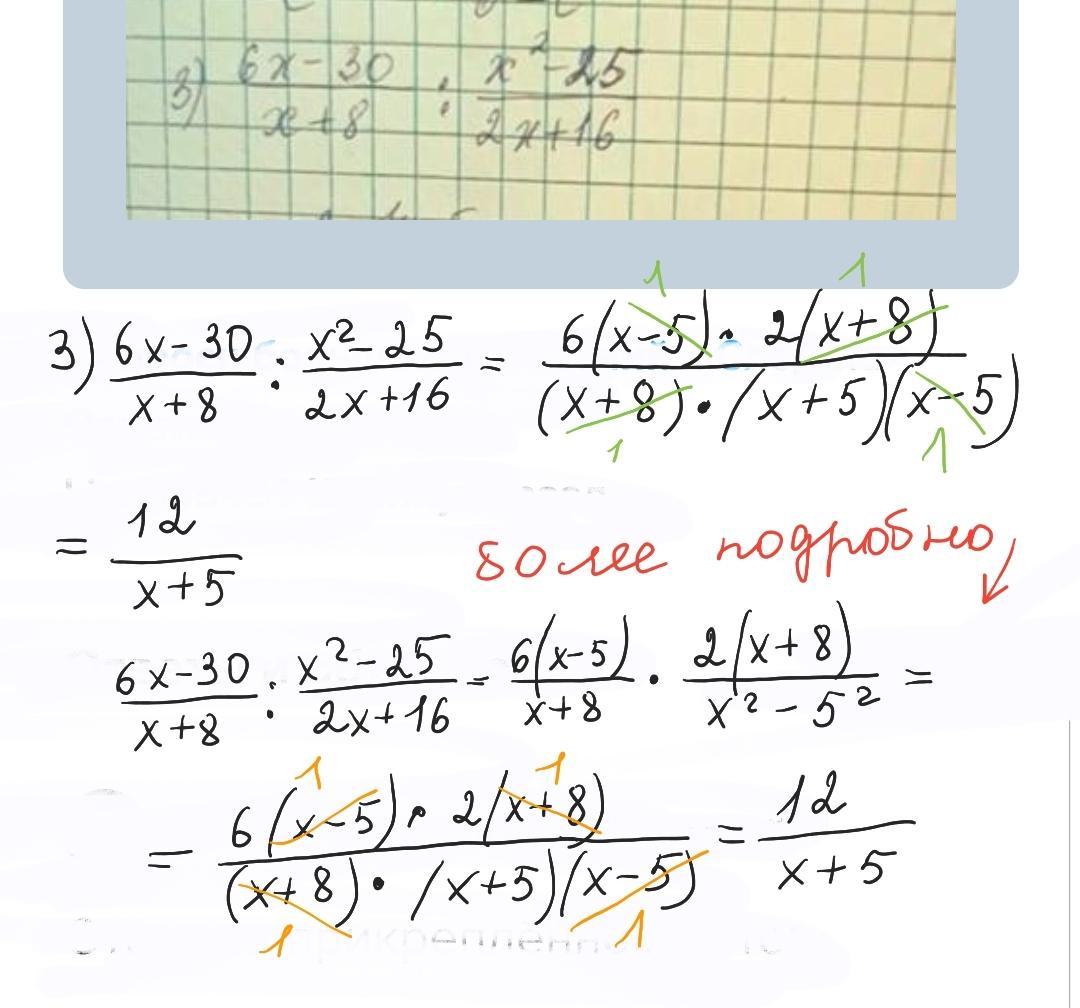 3) (6x-30)/(x+8) : (x²-25)/(2x+16)
3) (6x-30)/(x+8) : (x²-25)/(2x+16) = (6(x-5) · 2(x+8))/((x+8) · (x+5)(x-5))
1 1
1 1
= 12/(x+5)
более подробно
(6x-30)/(x+8) : (x²-25)/(2x+16) = 6(x-5)/(x+8) · 2(x+8)/(x²-5²) =
1 1
= (6(x-5) · 2(x+8))/((x+8) · (x+5)(x-5)) = 12/(x+5)
1 1